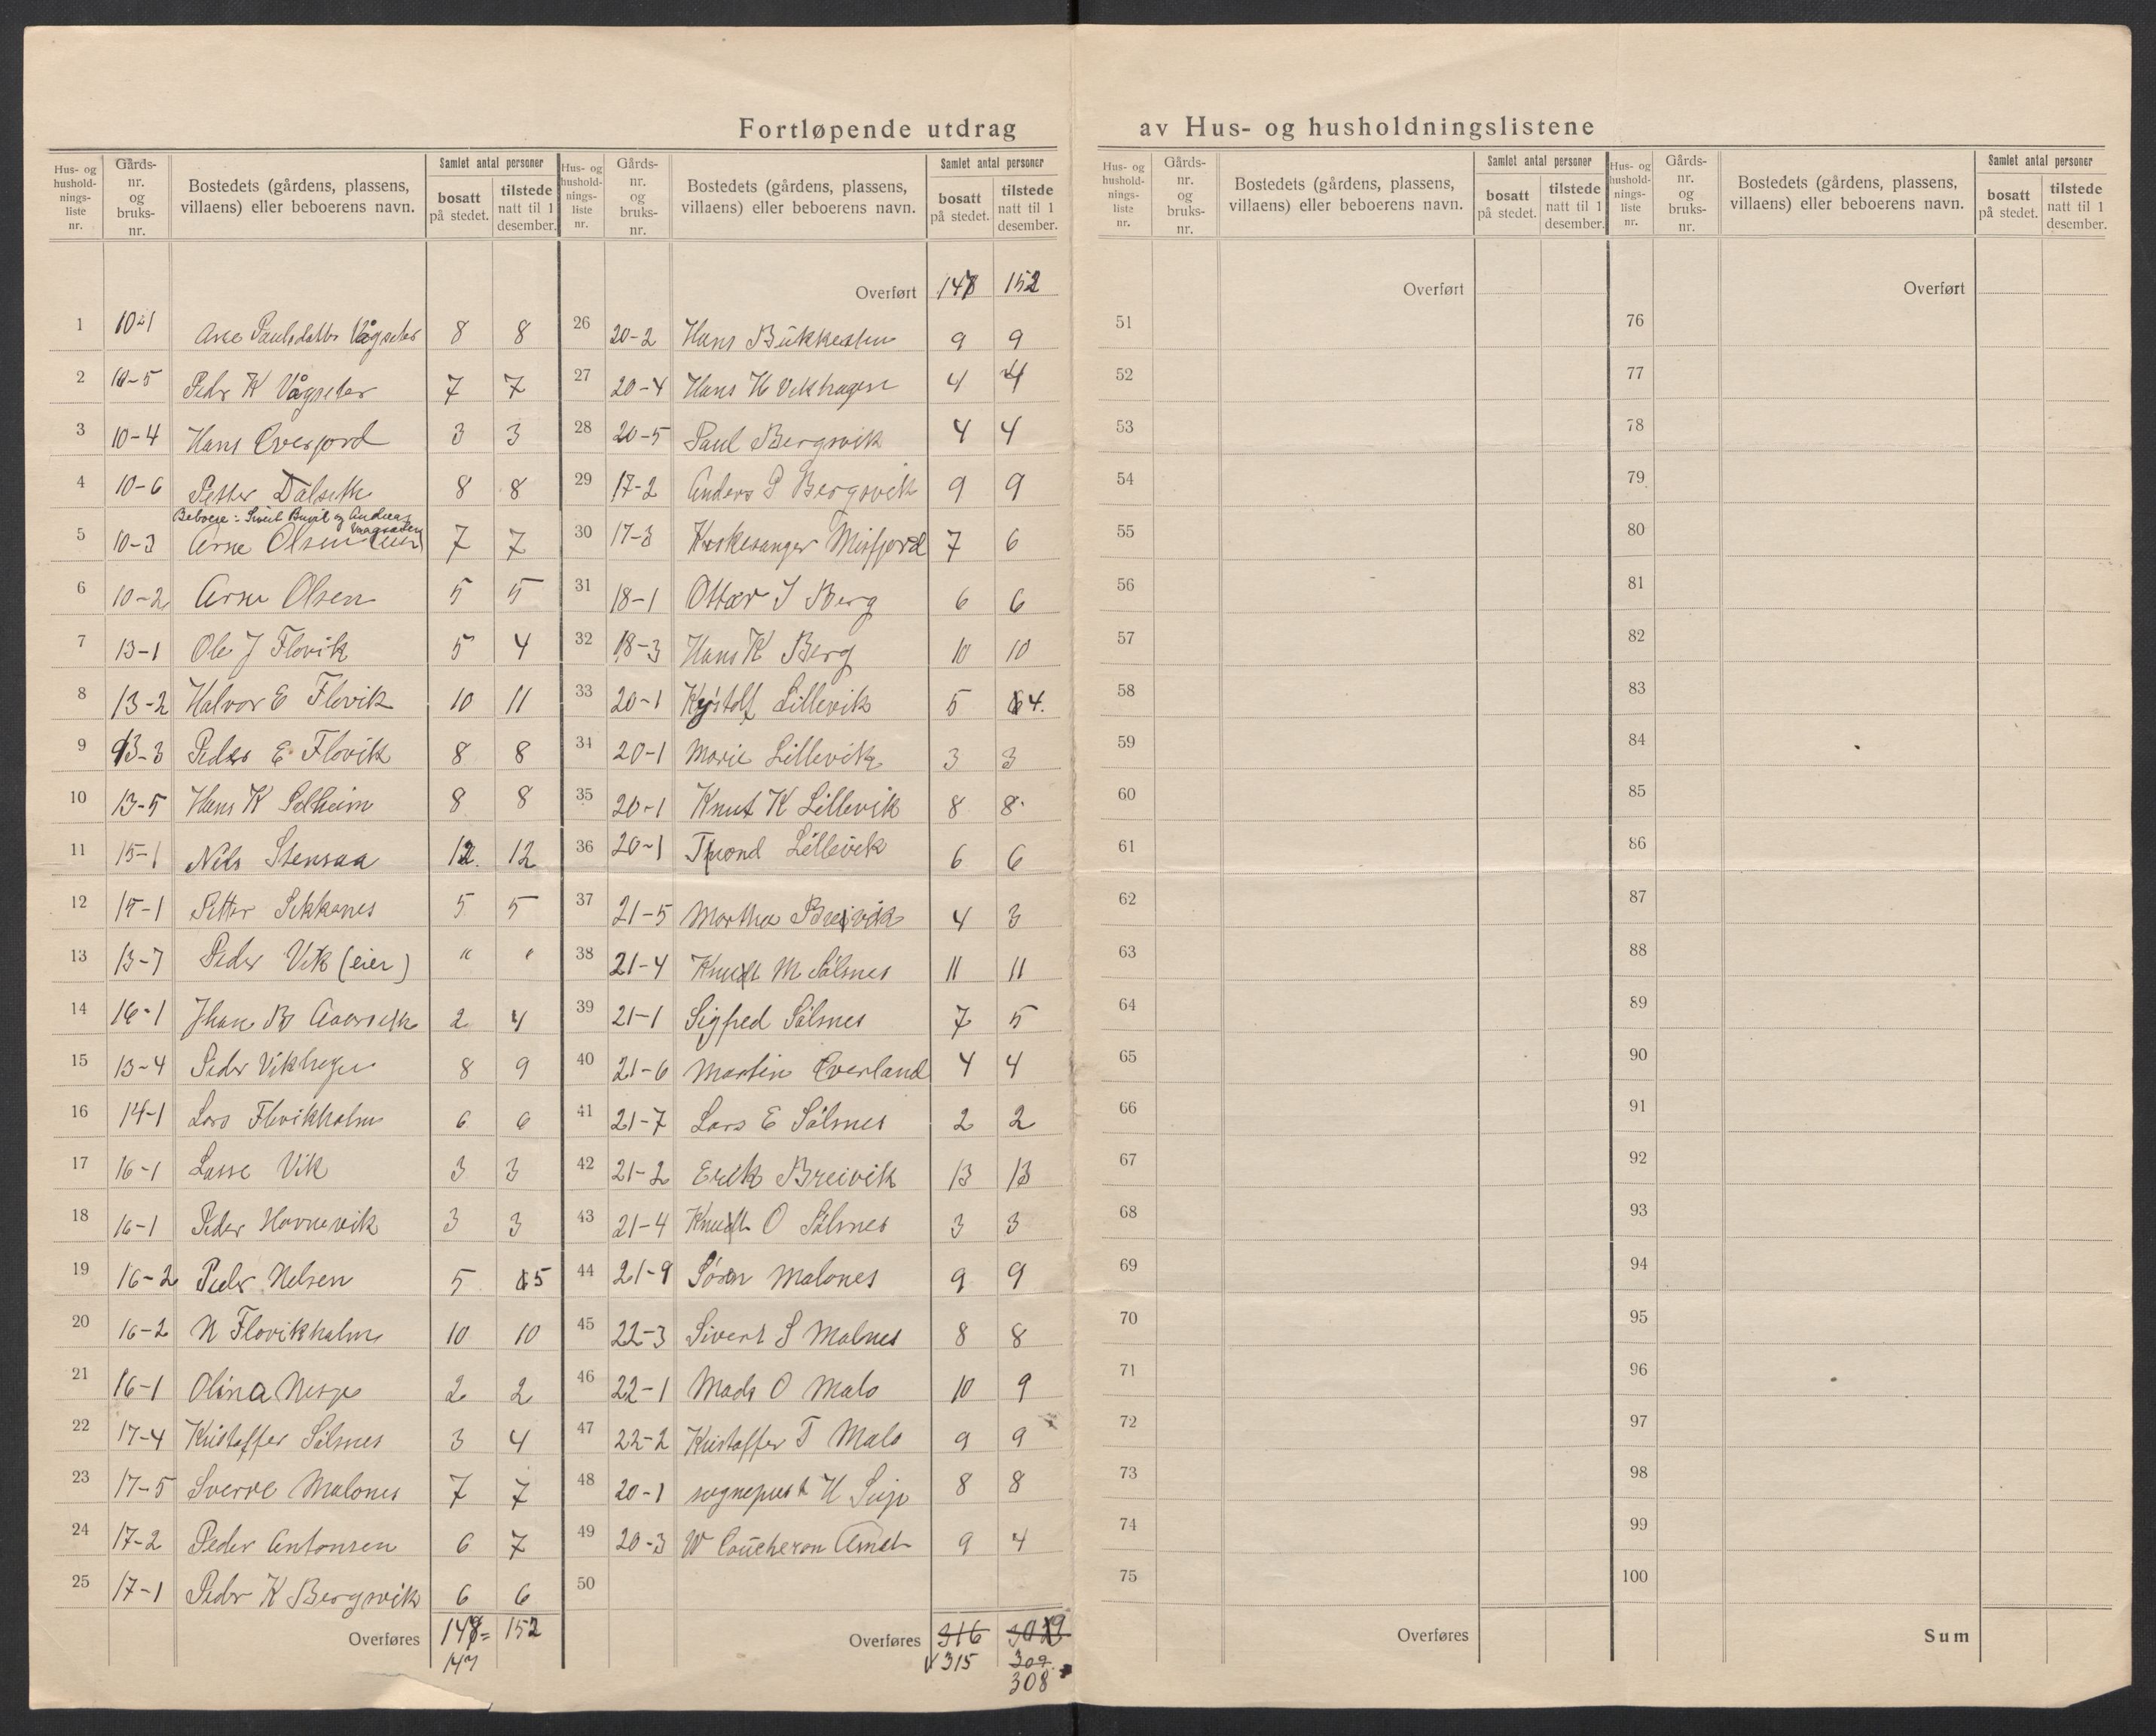 Fortløpende utdrag av Hus- og husholdningslistene
Hus- og hushold-nings-liste nr. Gårds-nr. og bruks-nr. Bostedets (gårdens, plassens, villaens) eller beboerens navn. Samlet antal personer bosatt på stedet. tilstede natt til 1 desember.
1 10-1 Ane Paulsdatter Vågseter 8 8
2 10-5 Peder K Vågseter 7 7
3 10-4 Hans Oversjord 3 3
4 10-6 Petter Dalsetk 8 8
Beboere: Sivert Buvik og Andreas Vaagsæter
5 10-3 Arne Olsen (eier) 7 7
6 10-2 Arne Olsen 5 5
7 13-1 Ole J Flovik 5 4
8 13-2 Halvor E Flovik 10 11
9 13-3 Peder E Flovik 8 8
10 13-5 Hans K Solheim 8 8
11 15-1 Nils Stensaa 12. 12
12 15-1 Petter Sekkenes 5 5
13 13-7 Peder Vik (eier) " "
14 16-1 Johan B 2 4
15 13-4 Peder Vikhagen 8 9
16 14-1 Lars Flovikholm 6 6
17 16-1 Lasse Vik 3 3
18 16-1 Peder Havnevik 3 3
19 16-2 Peder Nelsen 5 5
20 16-2 N Flovikholm 10 10
21 16-1 Olina Nesje 2 2
22 17-4 Kristoffer Sölsnes 3 4
23 17-5 Sverre Malones 7 7
24 17-2 Peder Antonsen 6 7
25 17-1 Peder K Bergsvik 6 6
Overføres 148 = 152
147
Hus- og hushold-nings-liste nr. Gårds-nr. og bruks-nr. Bostedets (gårdens, plassens, villaens) eller beboerens navn. Samlet antal personer bosatt på stedet. tilstede natt til 1 desember.
Overført 147 152
26 20-2 Hans Bukkesten 9 9
27 20-4 Hans H Vikhagen 4 4
28 20-5 Paul Bergsvik 4 4
29 17-2 Anders P Bergsvik 9 9
30 17-3 Misfjord 7 6
31 18-1 Ottar J Berg 6 6
32 18-3 Hans K Berg 10 10
33 20-1 Lillevik 5 4.
34 20-1 Marie Lillevik 3 3
35 20-1 Knut K Lillevik 8 8
36 20-1 Trond Lillevik 6 6
37 21-5 Martha Breivik 4 3
38 21-4 Knut M Sölsnes 11 11
39 21-1 Sigfred Sölsnes 7 5
40 21-6 Martin Overland 4 4
41 21-7 Lars E Sölsnes 2 2
42 21-2 Erik Breivik 13 13
43 21-4 Knut O Sölsnes 3 3
44 21-9 Sören Malones 9 9
45 22-3 Sivert S Malnes 8 8
46 22-1 Mads O Malo 10 9
47 22-2 Kristoffer T Malo 9 9
48 20-1 sogneprest H 8 8
49 20-3 W Coucheron Amot 9 4
50
Overføres 316
315 309
308
Hus- og hushold-nings-liste nr. Gårds-nr. og bruks-nr. Bostedets (gårdens, plassens, villaens) eller beboerens navn. Samlet antal personer bosatt på stedet. tilstede natt til 1 desember.
Overført
51
52
53
54
55
56
57
58
59
60
61
62
63
64
65
66
67
68
69
70
71
72
73
74
75
Overføres
Hus- og hushold-nings-liste nr. Gårds-nr. og bruks-nr. Bostedets (gårdens, plassens, villaens) eller beboerens navn. Samlet antal personer bosatt på stedet. tilstede natt til 1 desember.
Overført
76
77
78
79
80
81
82
83
84
85
86
87
88
89
90
91
92
93
94
95
96
97
98
99
100
Sum